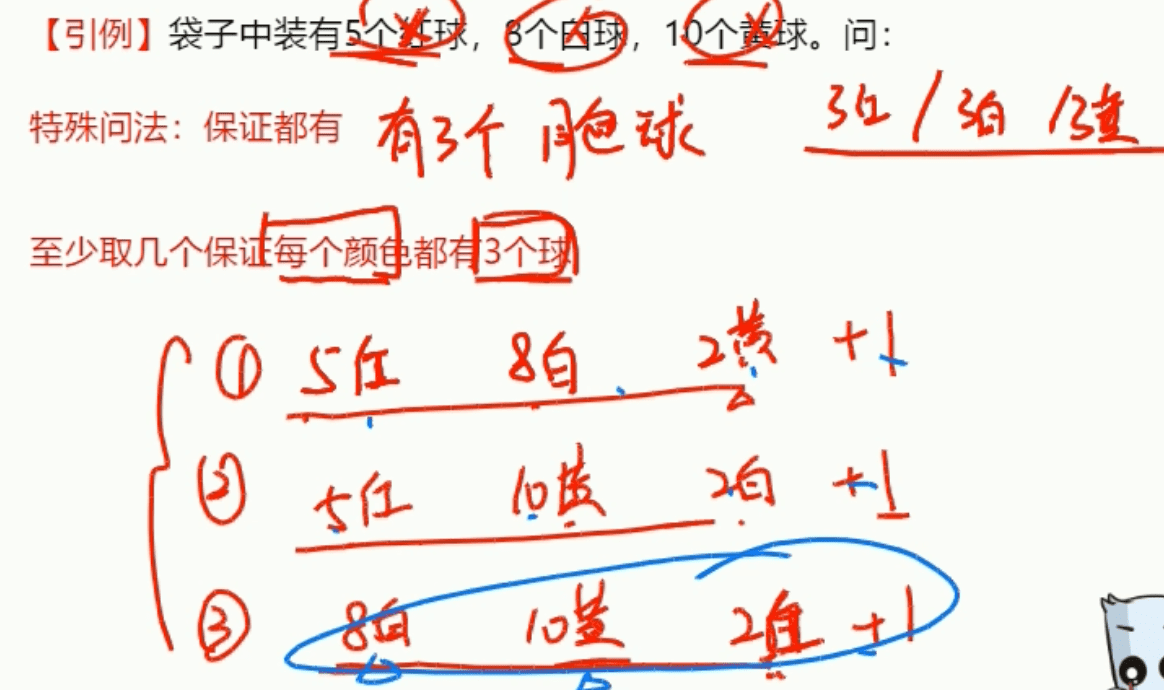 【引例】袋子中装有5个红球，8个白球，10个黄球。问：
特殊问法：保证都有 有3个 同色球 3红/3白/3黄
至少取几个保证每个颜色都有3个球
① 5红 8白 2黄 +1
② 5红 10黄 2白 +1
③ 8白 10黄 2 +1